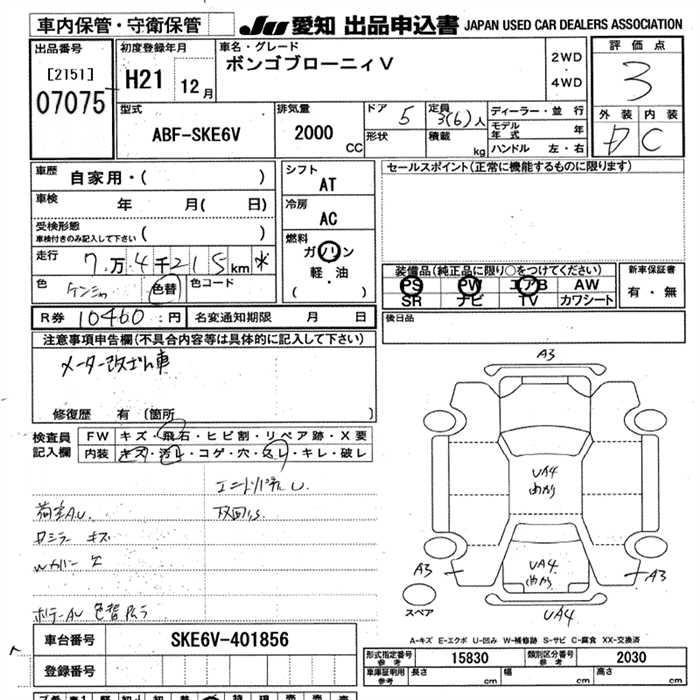 車内保管・守衛保管 JU 愛知 出品申込書 JAPAN USED CAR DEALERS ASSOCIATION
出品番号 [2151] 07075
初度登録年月 H21 12月
車名・グレード ボンゴブローニィV
2WD・4WD
評価点 3
外装 内装 C
型式 ABF-SKE6V
排気量 2000 CC
ドア 5 形状
定員 3(6)人 積載 kg
ディーラー・並行
モデル年式 年
ハンドル 左・右
車歴 自家用・( )
車検 年 月( 日)
受検形態 車検付きのみ記入して下さい ( )
走行 7万4千215km *
色 色替 色コード
シフト AT
冷房 AC
燃料 ガソリン 軽・油 ( )
セールスポイント(正常に機能するものに限ります)
装備品(純正品に限り○をつけてください)
PS PW エアB AW
SR ナビ TV カワシート
新車保証書 有・無
R券 10460 円 名変通知期限 月 日
後日品
注意事項申告欄(不具合内容等は具体的に記入して下さい)
メーター改ざん車
修復歴 有 [箇所 ]
検査員記入欄
FW キズ・飛石・ヒビ割・リペア跡・X要
内装 キズ・汚レ・コゲ・穴・スレ・キレ・破レ
A3
UA4
UA4
A3
A3
UA4
スペア
A-キズ E-エクボ U-凹み W-補修跡 S-サビ C-腐食 XX-交換済
車台番号 SKE6V-401856
登録番号
型式指定番号 参考 15830 類別区分番号 参考 2030
車庫証明用 参考 長さ cm 幅 cm 高さ cm